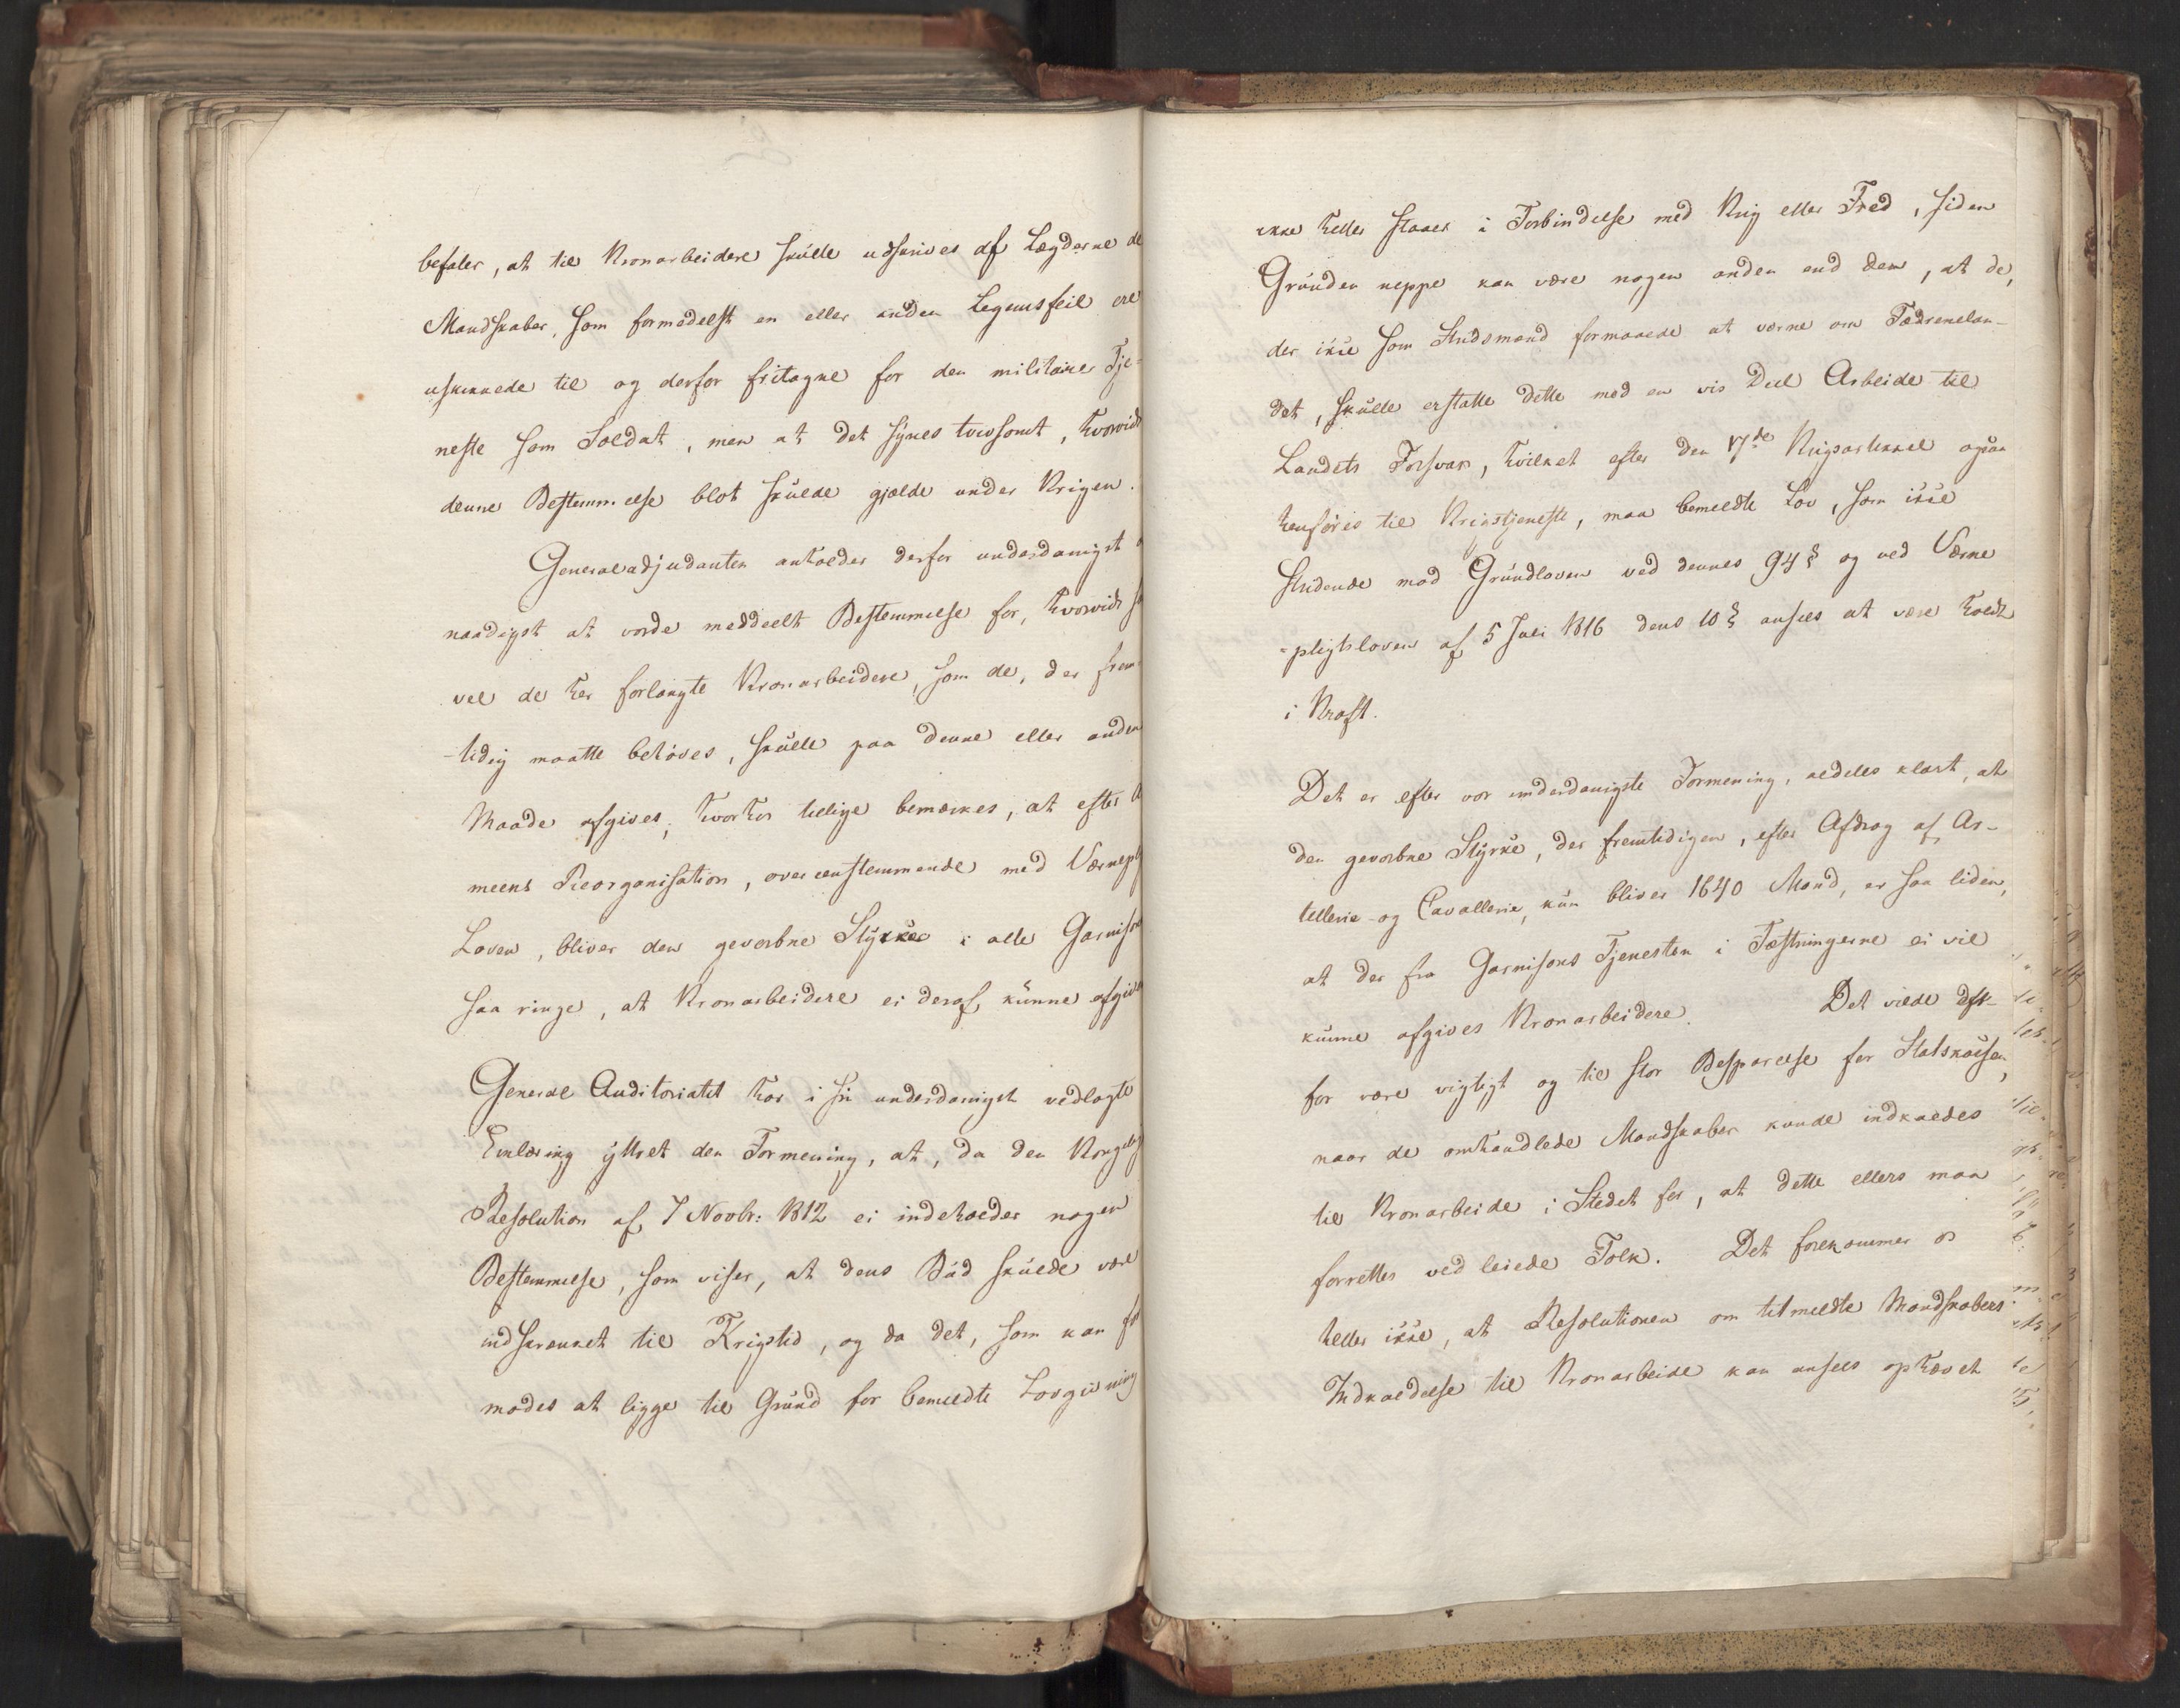 befaler, at til Kronarbeidere skulle udskrives af Lægderne de
Mandskaber, som formedelst en eller anden Legemsfeil ere
uskikkede til og derfor fritagne for den militaire Tje-
neste som Soldat, men at det synes tvivlsomt, hvorvidt
denne Bestemmelse blot skulde gjælde under Krigen.
Generaladjudanten anholder derfor underdanigst
naadigst at vorde meddeelt Bestemmelse for, hvorvidt
vel de her forlangte Kronarbeidere, som de, der frem-
-tidig maatte behøves, skulle paa denne eller anden
Maade afgives; hvorhos tillige bemærkes, at efter
meens Reorganisation, overeenstemmende med
Loven, bliver den gevorbne Styrke i alle
saa ringe, at Kronarbeidere ei deraf kunne
General Auditoriatet har i sin underdanigst vedlagte
Erklæring yttret den Formening, at, da den
Resolution af 7 Novbr: 1812 ei indeholder nogen
Bestemmelse, som viser, at dens Bud skulde være
indskrænket til Krigstid, og da det, som kan
modes at ligge til Grund for bemeldte Lovgivning
ikke heller staaer i Forbindelse med Krig eller Fred, siden
Grunden neppe kan være nogen anden end den, at de,
der ikke som Stridsmænd formaaede at værne om Fædrenelan-
det, skulle erstatte dette med en vis Deel Arbeide til
Landets Forsvar, hvilket efter den 17de Krigsartikkel ogsaa
henføres til Krigstjeneste, maa bemeldte Lov, som ikke
stridende mod Grundloven ved dennes 94 § og ved Værne
-pligtsloven af 5 Juli 1816 dens 10 § ansees at være holdt
i Kraft.
Det er efter vor underdanigste Formening, aldeles klart, at
den gevorbne Styrke, der fremtidigen, efter Afdrag af Ar-
tillerie- og Cavallerie, kun bliver 1640 Mand, er saa liden,
at der fra Garnisons Tjenesten i Fæstningerne ei vil
kunne afgives Kronarbeidere. Det vilde der-
for være vigtigt og til stor Besparelse for Statskassen,
naar de omhandlede Mandskaber kunde indkaldes
til Kronarbeide i Stedet for, at dette ellers maa
forrettes ved leiede Folk. Det forekommer os
heller ikke, at Resolutionen om titmeldte Mandskabers
Indkaldelse til Kronarbeide kan ansees ophævet